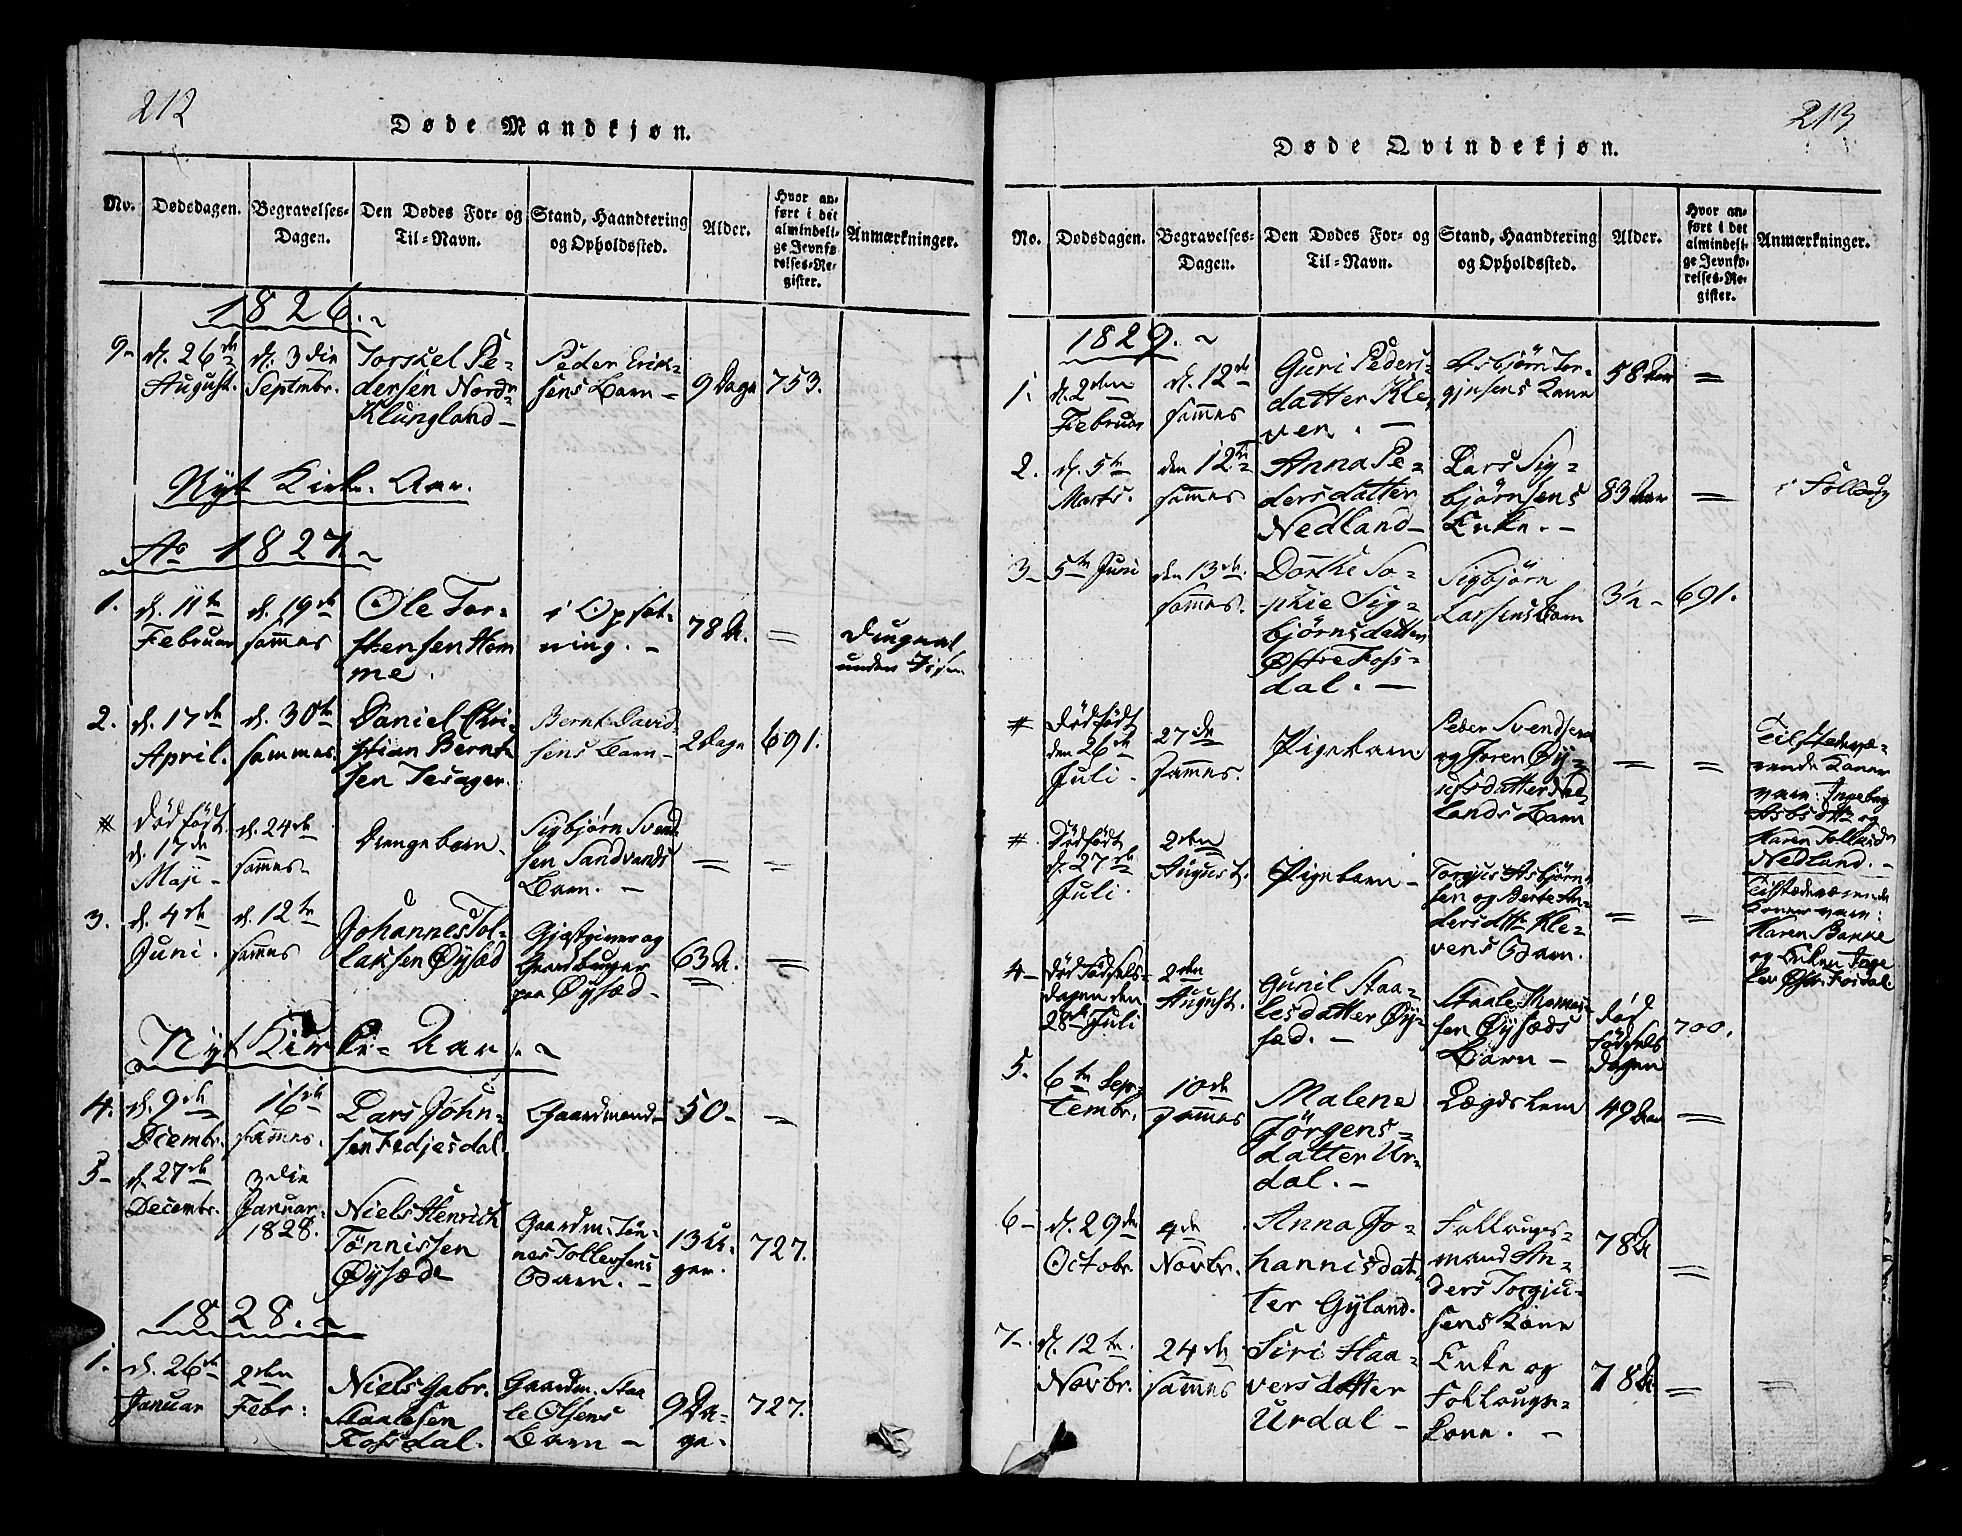 212
Døde Mandkjøn.
No.
Dødsdagen.
Begravelses-
Dagen.
Den Dødes For- og
Til-Navn.
Stand, Haandtering
og Opholdssted.
Alder.
Hvor an-
ført i det
almindeli-
ge Jevnfø-
relses-Re-
gister.
Anmærkninger.
1826.
9-
d. 26de
August.
d. 3die
Septmbr.
Torskel Pe-
dersen Nordr
Klungland
Peder Erik-
sens Barn
9 Dage
753.
Nÿt Kirke-Aar.
Ao 1827.
1.
d. 11te
Februar
d. 19de
sammes
Ole Tor-
stensen Hom-
me.
i Opfost-
ning.
78 A.
=
under
2.
d. 17de
April.
d. 30te
sammes
Daniel Chri-
stian Bernt-
sen Tesager.
Bernt David-
sens Barn
2 Dage
691.
#
Dödfödt
d. 17de
Maji
d. 24de
sammes
Drengebarn
Sigbjørn Svend-
sen Sandvands
Barn.
=
=
3.
d. 4de
Juni.
d. 12te
sammes
Johannes Tol-
laksen Øÿsæd
Gjæstgiver og
Gaardbruger
paa Øÿsæd
63 A.
=
Nÿt Kirke-Aar.
4.
d. 9de
Dcembr.
16de
sammes.
Lars John-
sen Fedjesdal.
Gaardmand
50-
=
5-
d. 27de
Decembr.
3die
Januar
1828.
Niels Henrich
Tønnissen
Øÿsæd
Gaardm. Tøn-
nes Tollevsens
Barn.
13 U-
ger.
727.
1828.
1.
d. 26de
Januar
2den
Febr:
Niels Gabr.
Staalesen
Fosdal.
Gaardm. Staa
le Olsens
Barn
9 Da-
ge.
727.
213
Døde Qvindekjøn.
No.
Dødsdagen.
Begravelses-
Dagen.
Den Dødes For- og
Til-Navn.
Stand, Haandtering
og Opholdssted.
Alder.
Hvor an-
ført i det
almindeli-
ge Jevnfø-
relses-Re-
gister.
Anmærkninger.
1829.
1.
d. 2den
Februar
d. 12te
sammes
Guri Peders-
datter Kle-
ven.
Asbjørn Tor-
gjusens Kone
58 Aar
=
2.
d. 5te
Marts.
den 12te
sammes
Anna Pe-
dersdatter
Nedland
Lars Sig-
bjørnsens
Enke.
83 Aar
=
3-
5te Juni
den 13de
sammes.
Dorthe So-
phie Sig-
bjørnsdatter
Østre Foss-
dal.
Sigbjørn
Larsens Barn
3½
691.
#
Dødfødt
den 26de
Juli.
27de
sammes.
Pigebarn
Peder Svendsen
og Joren Øÿ-
ufsdatter Ned-
lands Barn
=
=
Tilstedevæ-
rende Koner
vare: Ingeborg
Asbsdtr og
Karen Tollaksdr
Nedland.
#
Dödfödt
d. 27de
Juli.
2den
August.
Pigebarn
Torgius Asbjørn-
sen og Berte An-
dersdtr Kle-
vens Barn.
=
=
Tilstedeværende
Koner vare:
Karen Bakke
og Enken
Østr. Fosdal.
4-
Död Födsels-
dagen den
28de Juli
2den
August.
Gunil Staa-
lesdatter Øÿ-
sæd.
Staale Thomas-
sen Øÿsæds
Barn
død
födsels
dagen
700.
5.
6te Sep-
tembr.
10de
sammes
Malene
Jörgens-
datter Ur-
dal.
Lægdslem
49 Aar
=
6-
d. 29de
Octobr.
4de
Novbr.
Anna Jo-
hannisdat-
ter Gÿland.
Folkougs-
mand An-
ders Torgju-
sens Kone
78 A
=
7-
d. 12te
Novbr.
24de
sammes
Siri Haa-
versdatter
Urdal
Enke og
Folkougs-
kone.
78 A
=
=